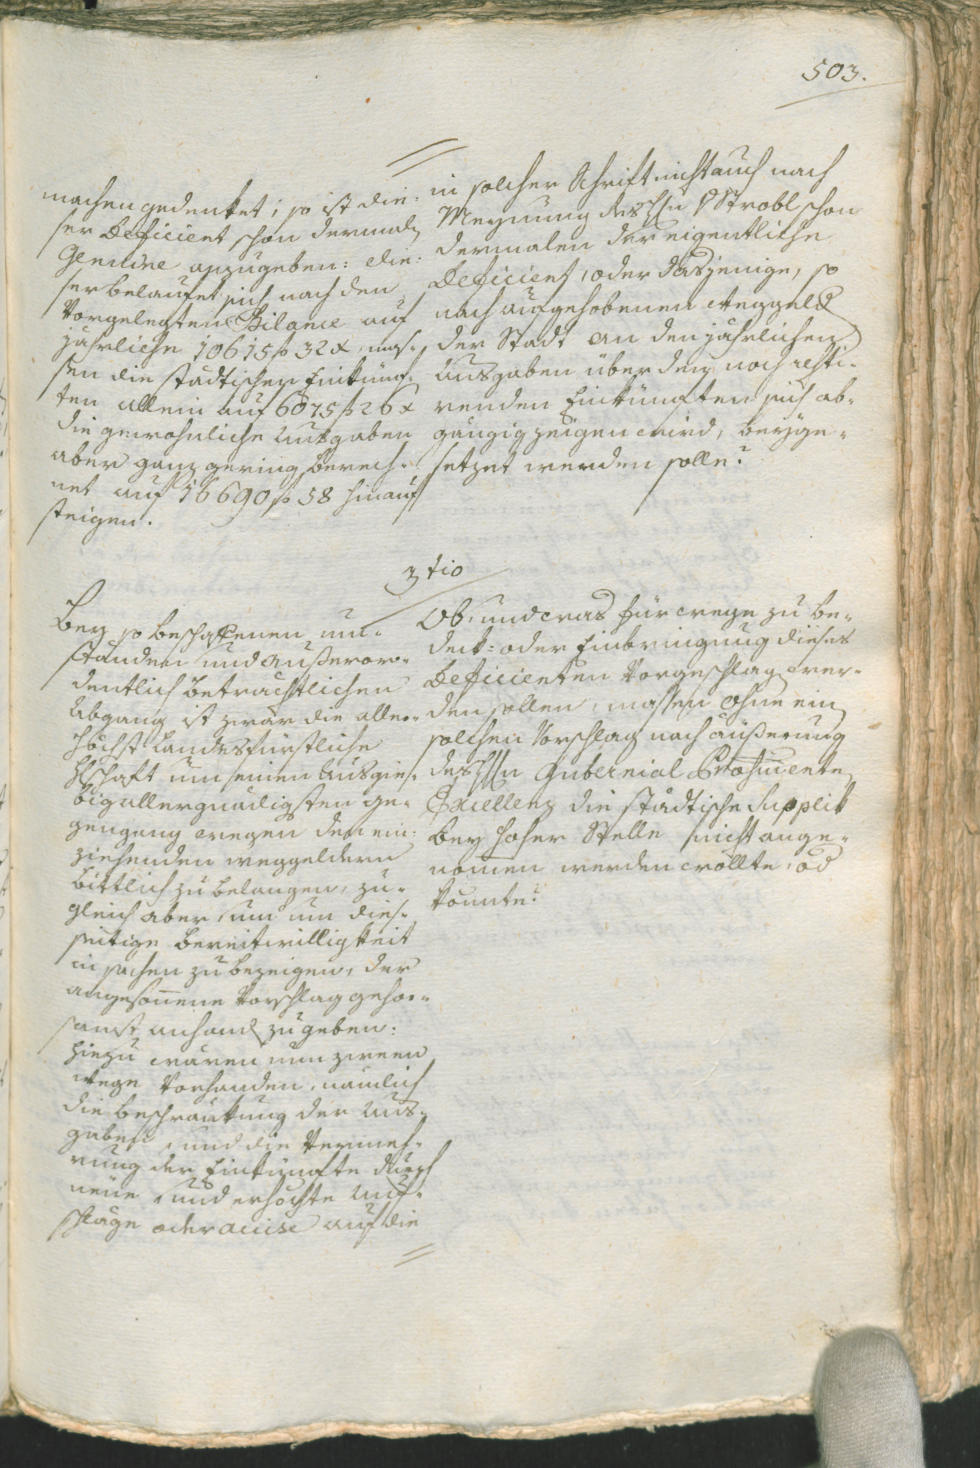 503.
machen gedenket; so ist die-
ser Deficient schon dermals
Genuine anzugeben: die-
ser belaufet sich nach den
Vorgelegten Bilance auf
jährliche 10615 f 32 x, mas-
sen die städtischen Einkünf-
ten allein auf 6075 f 26 x
die gewohnliche Ausgaben
aber ganz gering berech-
net auf 16690 f 58 hinauf
steigen.
in solcher Schrift nicht auch nach
Meynung des H: v Strobl schon
dermalen der eigentliche
Deficient, oder dasjenige, so
nach aufgehobenen Weggeld
der Stadt an den jährlichen
Ausgaben über den noch resti-
renden Einkünften sich ab-
gängig zeigen wird, beyge-
setzet werden solle?
3tio
Bey so beschaffenen um-
ständen und außeror-
dentlich beträchtlichen
Abgang ist zwar die aller-
höchst Landesfürstliche
Hschaft um einen Ausgie-
big allergnädigsten ge-
gengung wegen den ein-
ziehenden Weggeldern
bittlich zu belangen, zu-
gleich aber, um um dies-
seitige bereitwilligkeit
in sachen zu bezeigen, der
angesonnene Vorschlag gehor-
samst anhand zu geben:
Hiezu wären nun zween
Wege Vorhanden, nämlich
die beschränkung der Aus-
gaben, und die Vermeh-
rung der Einkünfte durch
neue, und erhöchte Auf-
schläge oder accise auf die
Ob, und was für wege zu be-
deck- oder Einbringung dieses
Deficienten Vorgeschlagen wer-
den sollen, massen ohne ein
solchen Vorschlag nach äußerung
des H: Gubernial Præsidenten
Excellenz die städtische Supplik
bey hoher Stelle nicht ange-
nomen werden wollte, od
könnte?